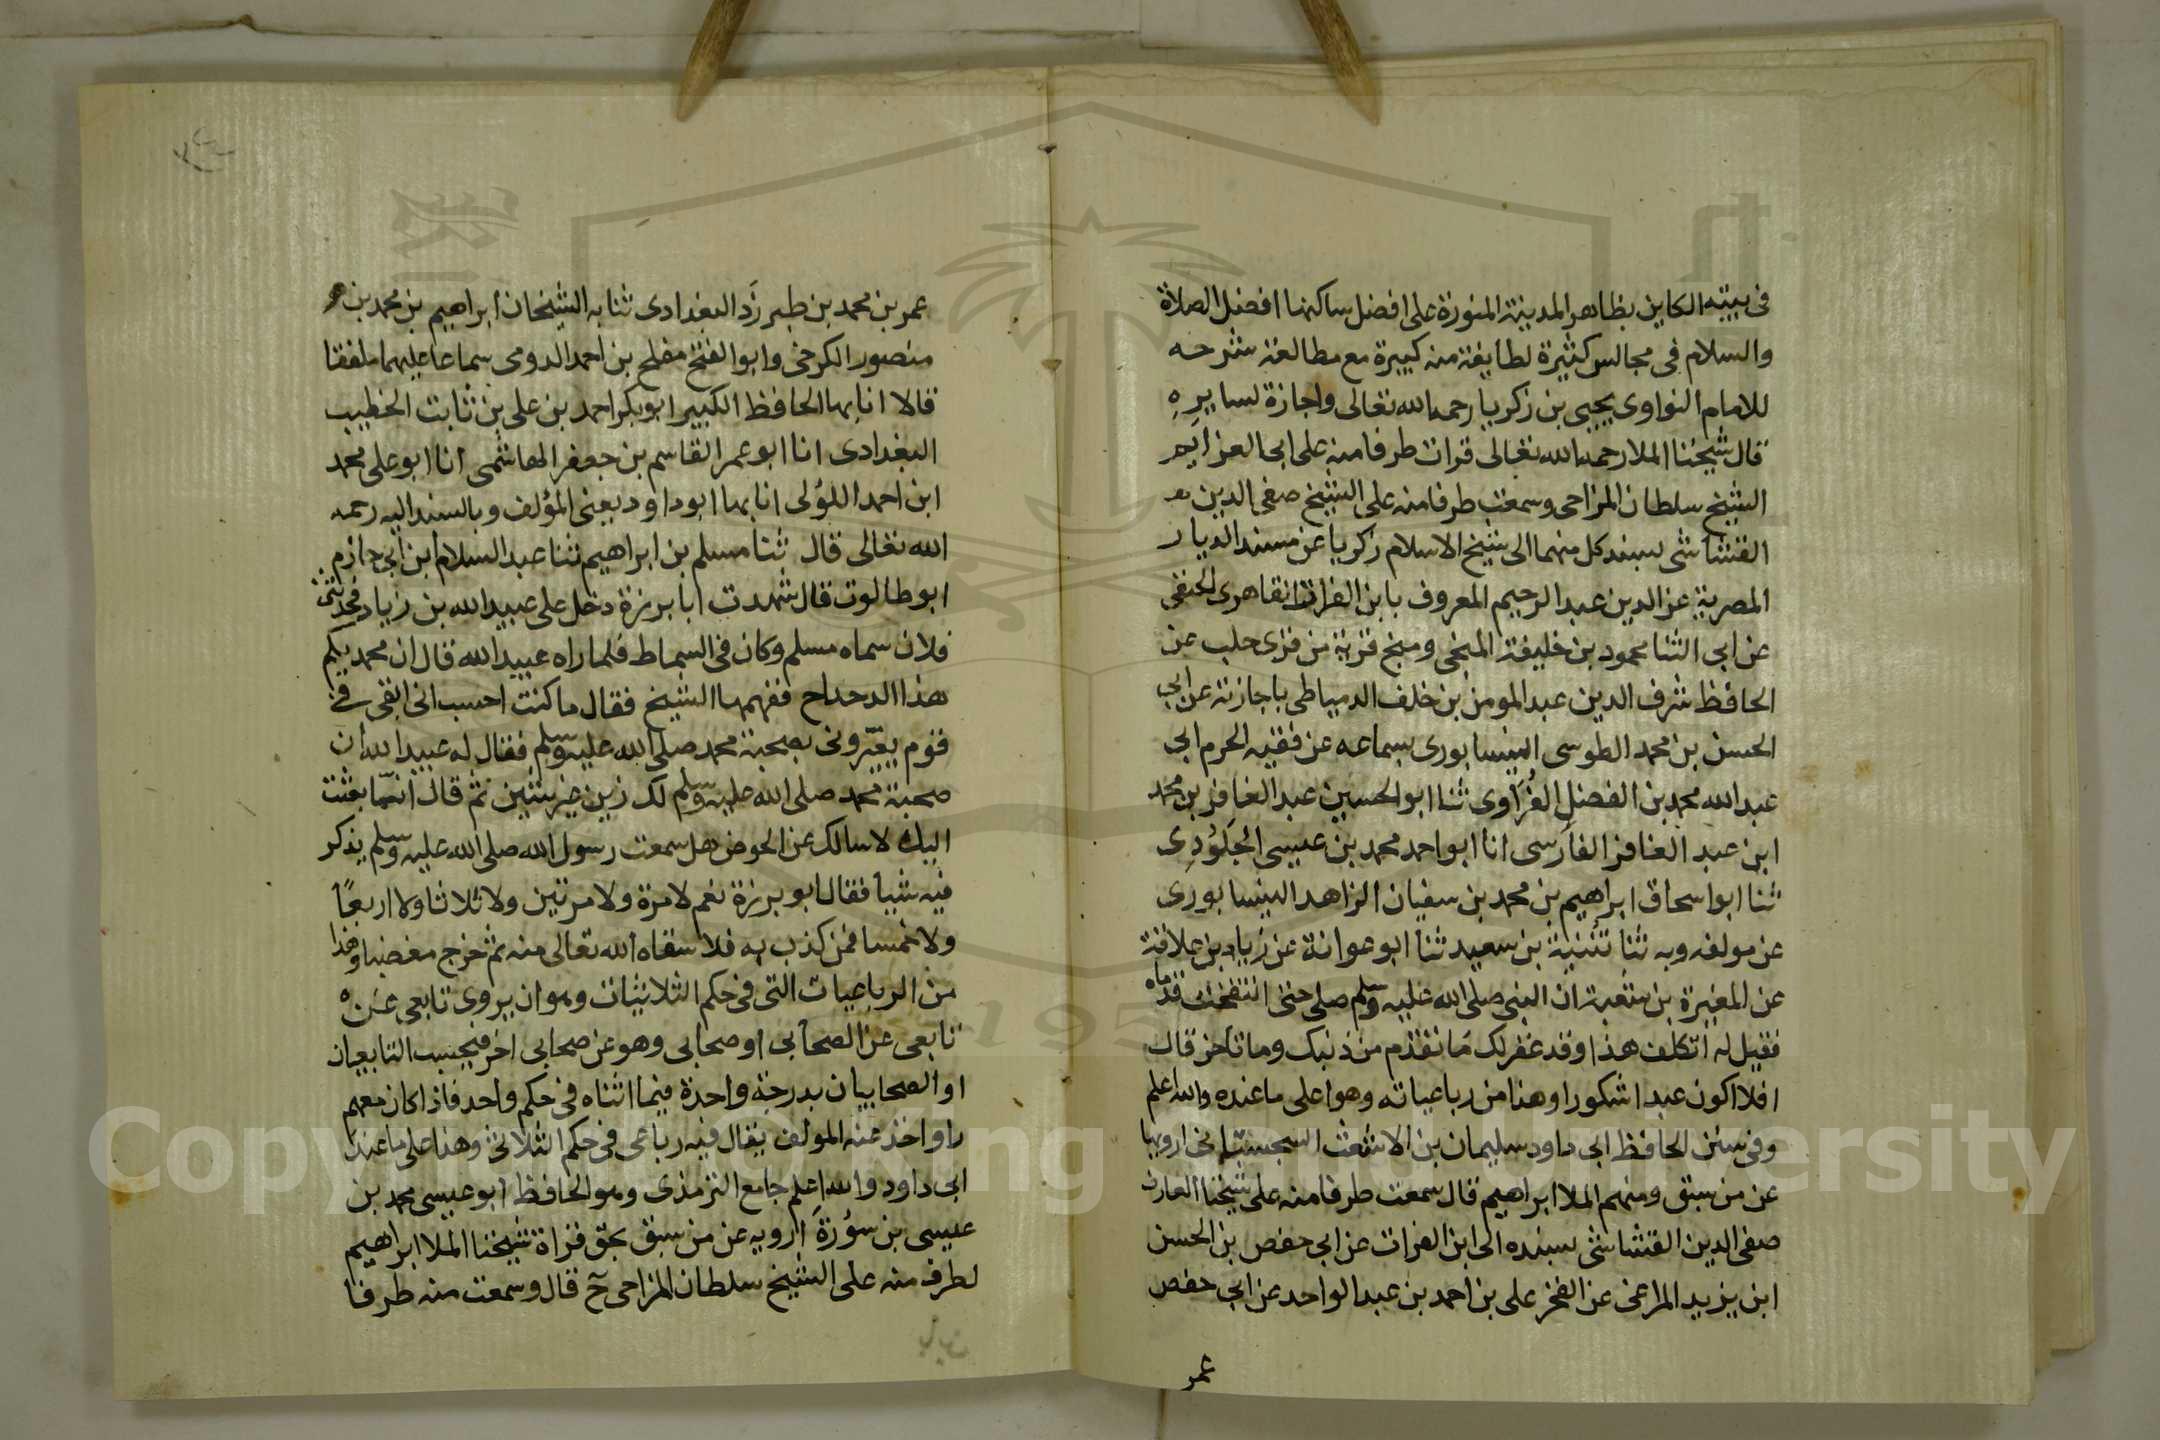 في بيته الكاين بظاهر المدينة المنورة على افضل ساكنها افضل الصلاة
والسلام في مجالس كثيرة لطايفة منه كبيرة مع مطالعة شرحه
للامام النواوى يحيى بن زكريا رحمه الله تعالى واجازة لسايره
قال شيخنا الملا رحمه الله تعالى قرات طرفا منه على ابى العزايم
الشيخ سلطان المزاحى وسمعت طرفا منه على الشيخ صفى الدين
القشاشى بسند كل منهما الى شيخ الاسلام زكريا عن مسند الديار
المصرية عز الدين عبد الرحيم المعروف بابن الفرات القاهرى الحنفى
عن ابى الثنا محمود بن خليفة المنبجى ومنبج قرية من قرى حلب عن
الحافظ شرف الدين عبد المومن بن خلف الدمياطى باجازته عن ابى
الحسن بن محمد الطوسى النيسابورى بسماعه عن فقيه الحرم ابى
عبد الله محمد بن الفضل الفُرَاوى ثنا ابو الحسين عبد الغافر بن محمد
ابن عبد الغافر الفارسى انا ابو احمد محمد بن عيسى الجلودى
ثنا ابو اسحاق ابراهيم بن محمد بن سفيان الزاهد النيسابورى
عن مولفه وبه ثنا قتيبة بن سعيد ثنا ابو عوانة عن زياد بن علاقة
عن المغيرة بن شعبة ان النبى صلى الله عليه وسلم صلى حتى انتفخت قدماه
فقيل له اتكلف هذا وقد غفر لك ما تقدم من ذنبك وما تاخر قال
افلا اكون عبدا شكورا وهذا من رباعياته وهو اعلى ما عنده والله اعلم
وفى سنن الحافظ ابى داود سليمان بن الاشعث السجستانى ارويها
عن من سبق ومنهم الملا ابراهيم قال سمعت طرفا منه على شيخنا العارف
صفى الدين القشاشى بسنده الى ابن الفرات عن ابى حفص بن الحسن
ابن يزيد المراغى عن الفخر على بن احمد بن عبد الواحد عن ابى حفص
عمر
عمر بن محمد بن طبرزَد البغدادى ثنا به الشيخان ابراهيم بن محمد بن
منصور الكرخى وابو الفتح مفلح بن احمد الدومى سماعا عليهما ملفقا
قالا انا بها الحافظ الكبير ابو بكر احمد بن على بن ثابت الخطيب
البغدادى انا ابو عمر القاسم بن جعفر الهاشمى انا ابو على محمد
ابن احمد اللؤلى انا بها ابو داود يعنى المؤلف وبالسند اليه رحمه
الله تعالى قال ثنا مسلم بن ابراهيم ثنا عبد السلام ابن ابى حازم
ابو طالوت قال شهدت ابا برزة دخل على عبيد الله بن زياد فحدثنى
فلان سماه مسلم وكان فى السماط فلما راه عبيد الله قال ان محمديكم
هذا الدحداح ففهمها الشيخ فقال ما كنت احسب انى ابقى فى
قوم يعيّرونى بصحبة محمد صلى الله عليه وسلم فقال له عبيد الله ان
صحبة محمد صلى الله عليه وسلم لك زين غير شين ثم قال انما بعثت
اليك لاسالك عن الحوض هل سمعت رسول الله صلى الله عليه وسلم يذكر
فيه شيا فقال ابو برزة نعم لا مرة ولا مرتين ولا ثلاثا ولا اربعًا
ولا خمسا فمن كذب به فلا سقاه الله تعالى منه ثم خرج مغضبا وهذا
من الرباعيات التى فى حكم الثلاثيات وهو ان يروى تابعى عن
تابعى عن الصحابى او صحابى وهو عن صحابى اخر فيحسب التابعيان
او الصحابيان بدرجة واحدة فيما اثناه فى حكم واحد فاذا كان معهم
راو اخذ عنه المولف يقال فيه رباعى فى حكم الثلاثى وهذا على ما عند
ابى داود والله اعلم جامع الترمذى وهو الحافظ ابو عيسى محمد بن
عيسى بن سورة ارويه عن من سبق بحق قراة شيخنا الملا ابراهيم
لطرف منه على الشيخ سلطان المزاحى ح قال وسمعت منه طرفا